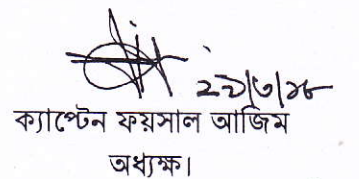 ২১/৩/১৮
ক্যাপ্টেন ফয়সাল আজিম
অধ্যক্ষ।